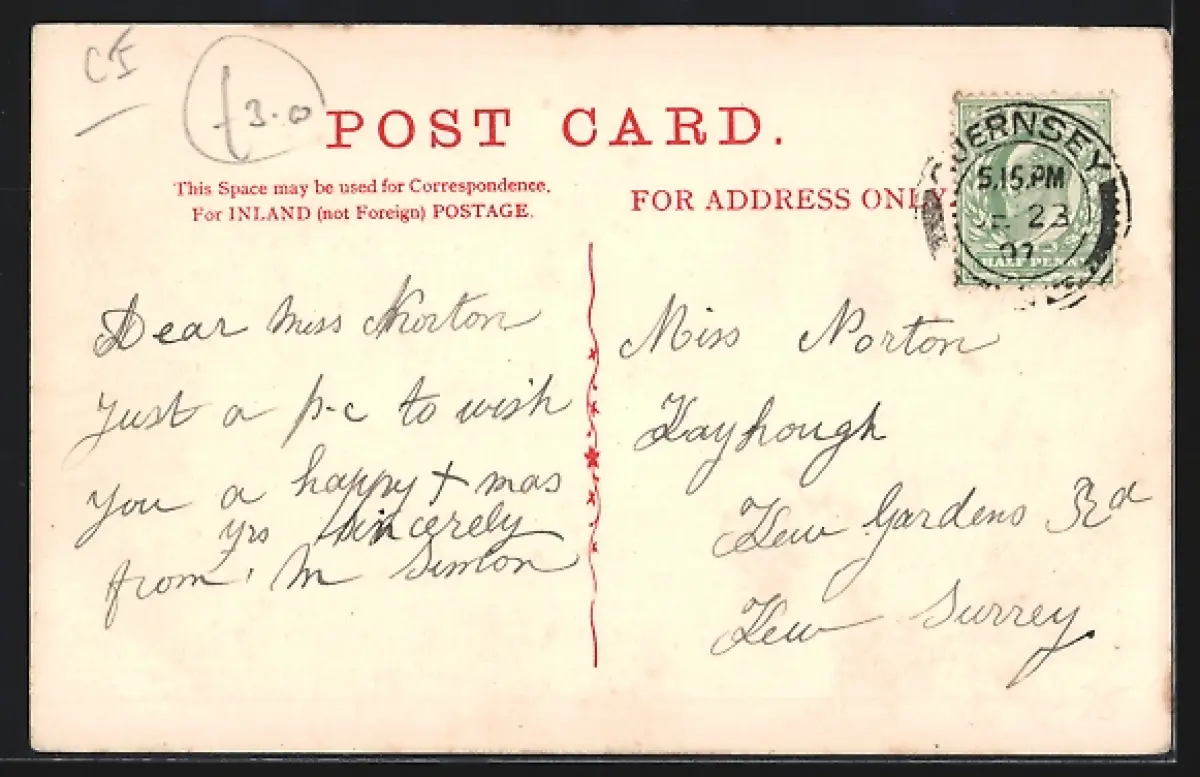 CI
£3.0
POST CARD.
This Space may be used for Correspondence.
For INLAND (not Foreign) POSTAGE.
FOR ADDRESS ONLY
UERNSEY
5.15.PM
23
07
HALF PENNY
Dear Miss Norton
Just a p-c to wish
you a happy X mas
yrs sincerely
from, M Simon
Miss Norton
Kayhough
Kew Gardens Rd
Kew Surrey